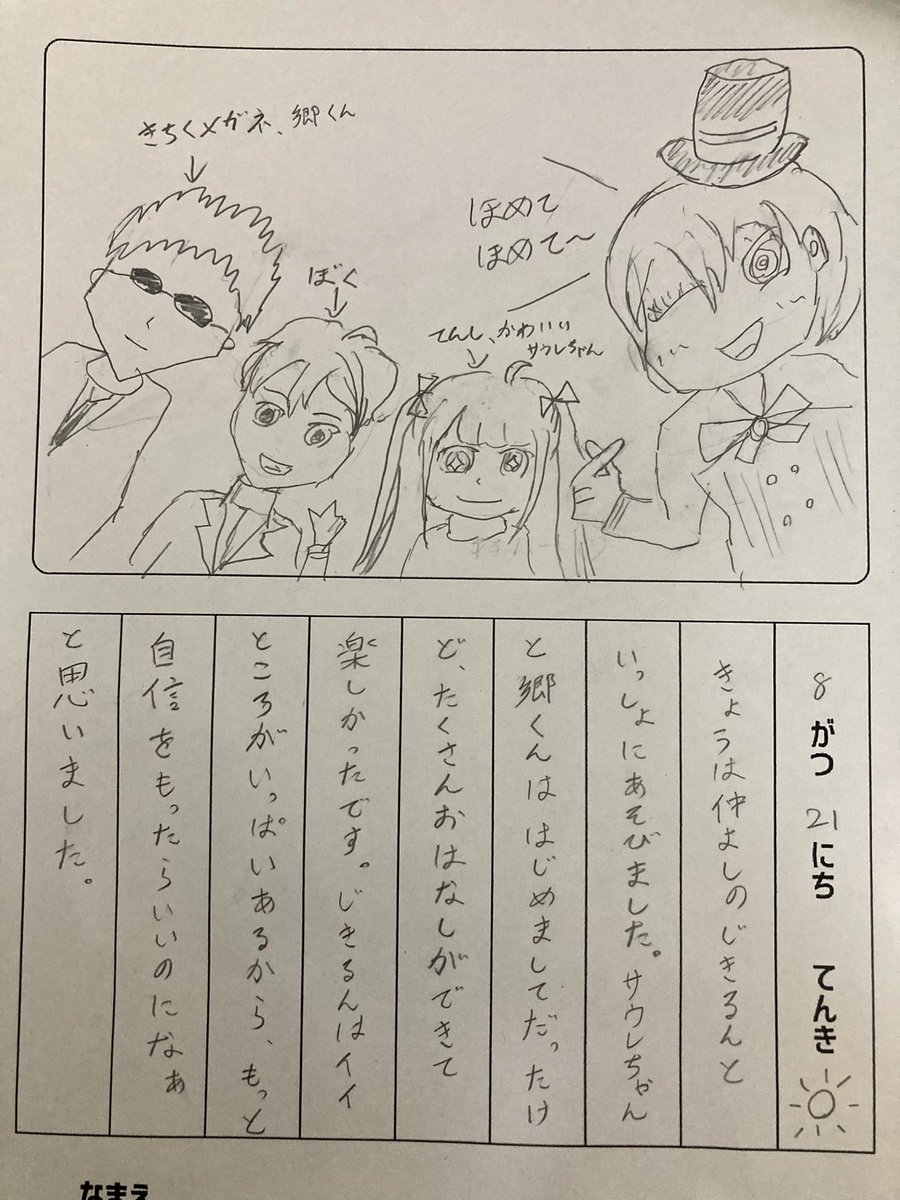 きちくメガネ、郷くん
ぼく
てんし、かわいい
サウレちゃん
ほめて
ほめて〜
8がつ21にち てんき
きょうは仲よしのじきるんと
いっしょにあそびました。サウレちゃん
と郷くんははじめましてだったけ
ど、たくさんおはなしができて
楽しかったです。じきるんはイイ
ところがいっぱいあるから、もっと
自信をもったらいいのになぁ
と思いました。
なまえ